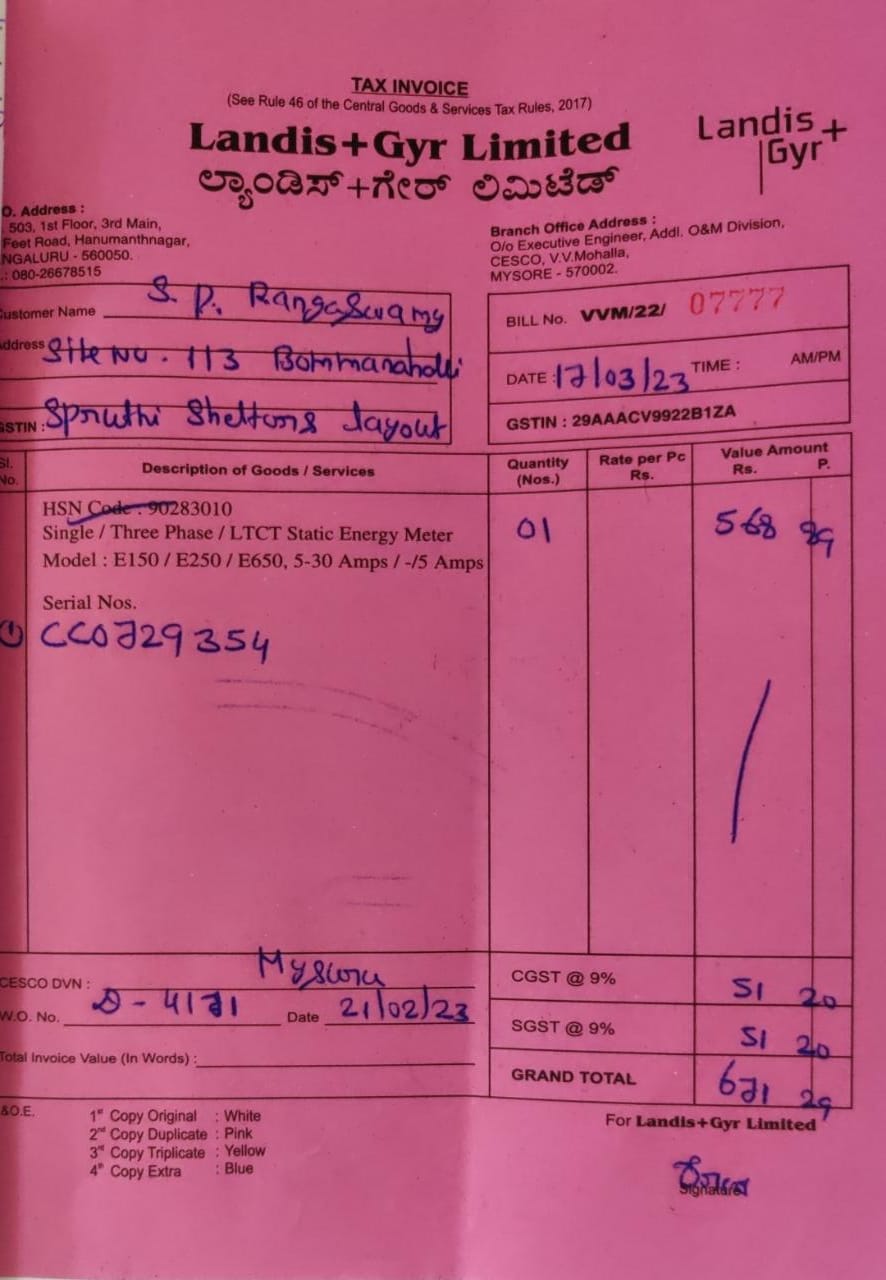 TAX INVOICE
(See Rule 46 of the Central Goods & Services Tax Rules, 2017)
Landis+Gyr Limited
ಲ್ಯಾಂಡಿಸ್+ಗೇರ್ ಲಿಮಿಟೆಡ್
Landis+
Gyr
O. Address :
503, 1st Floor, 3rd Main,
Feet Road, Hanumanthnagar,
NGALURU - 560050.
.: 080-26678515
Branch Office Address :
O/o Executive Engineer, Addl. O&M Division,
CESCO, V.V.Mohalla,
MYSORE - 570002.
ustomer Name S. P. Rangaswamy
ddress Site No. 113 Bommanahalli
STIN : Spruthi Sheltons layout
BILL No. VVM/22/ 07777
DATE : 17/03/23 TIME : AM/PM
GSTIN : 29AAACV9922B1ZA
Sl. No. Description of Goods / Services Quantity (Nos.) Rate per Pc Rs. Value Amount Rs. P.
HSN Code : 90283010
Single / Three Phase / LTCT Static Energy Meter 01 568 89
Model : E150 / E250 / E650, 5-30 Amps / -/5 Amps
Serial Nos.
① CC0729354
CESCO DVN : Mysuru
W.O. No. D - 4171 Date 21/02/23
Total Invoice Value (In Words) :
CGST @ 9% 51 20
SGST @ 9% 51 20
GRAND TOTAL 671 29
&O.E.
1st Copy Original : White
2nd Copy Duplicate : Pink
3rd Copy Triplicate : Yellow
4th Copy Extra : Blue
For Landis+Gyr Limited
Signature